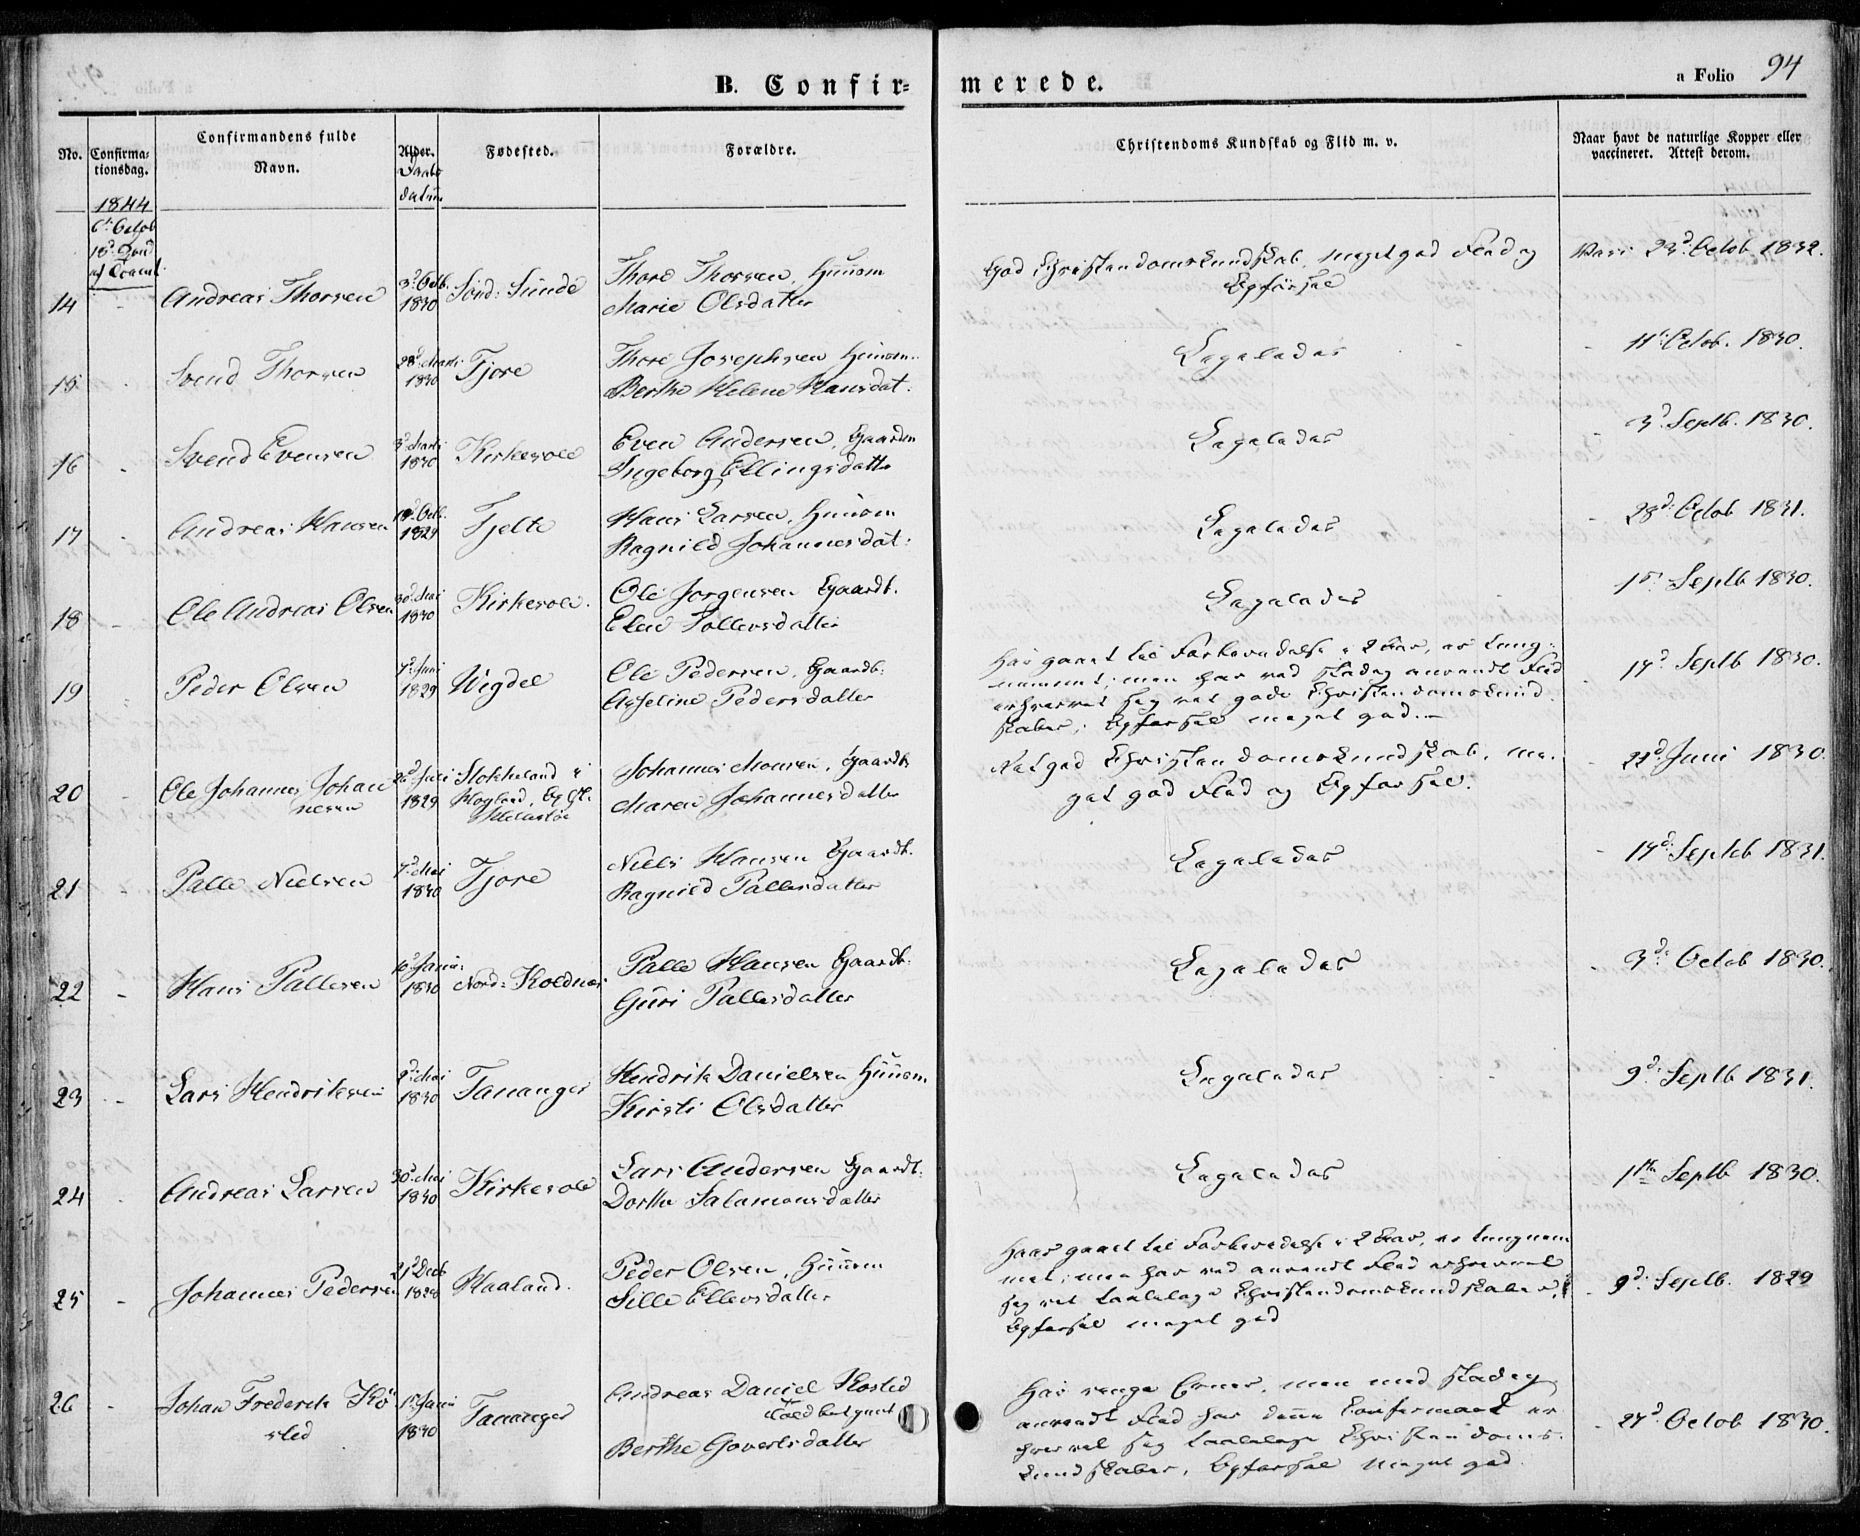 B. Confir=
merede.
a Folio 94
No.
Confirma-
tionsdag.
Confirmandens fulde
Navn.
Alder.
Daabs
datum
Fødested.
Forældre.
Christendoms Kundskab og Flid m. v.
Naar havt de naturlige Kopper eller
vaccineret. Attest derom.
1844
6te Octob
18d
14 Andreas Thorsen 3d Octb. 1830 Sönd: Sunde
Thore Thorsen, Huusm
Marie Olsdatter
God Christendomskundskab, meget god Flid og
Opførsel
Vacc 23d Octob 1832.
15 Svend Thorsen 28d Marts 1830 Tjore
Thore Josephsen Huusm.
Berthe Helene Hansdat.
Ligeledes
- 11te Octob. 1830.
16 Svend Evensen 3d Marts 1830 Kirkesole
Even Andersen, Gaardm
Ingeborg Ellingsdatter
Ligeledes
- 3d Septb. 1830.
17 Andreas Hansen Octb. 1829 Tjelte
Hans Larsen, Huusm
Ragnild Johannesdat:
Ligeledes
- 28d Octob 1831.
18 Ole Andreas Olsen 30d Mai 1830 Kirkesole.
Ole Jorgensen Gaardb.
Elen Tollevsdatter
Ligeledes
Septb 1830.
19 Peder Olsen 7d Juni 1829 Wigdel
Ole Pedersen, Gaardb.
Axeline Pedersdatter
Har gaaet til Forberedelse i 2 Aar, er tung-
nemmet; men har ved stadig anvendt Flid
erhvervet sig ret gode Christendomskund
skaber; Opførsel meget god.-
- 17d Septb 1830.
20 Ole Johannes Johan
nesen
26d Juli 1829 Stokkeland i
Hogland,
Johannes Monsen, Gaardb
Maren Johannesdatter
Ret god Christendomskundskab, me-
get god Flid og Opførsel.
- 21d Juni 1830.
21 Palle Nielsen 7d Mai 1830 Tjore
Niels Hansen Gaardb.
Ragnild Pallesdatter
Ligeledes
- 17d Septbb 1831.
22 Hans Pallesen 10d Janu: 1830 Nord: Koldnes
Palle Hansen Gaardb.
Guri Pallesdatter
Ligeledes
- 3d Octob 1830.
23 Lars Hendriksen 2d Mai 1830 Tananger
Hendrik Danielsen Huusm.
Kirsti Olsdatter
Ligeledes
- 9d Septb 1831.
24 Andreas Larsen 30d Mai 1830 Kirkesole
Lars Andersen Gaardb.
Dorthe Salamonsdatter
Ligeledes
1te Septb 1830.
25 Johannes Pedersen 21d Decb 1828 Haaland.
Peder Olsen, Huusm
Sille Ellevsdatter
Haar gaaet til Forberedelse i 2 Aar, er tungnem
met; men har ved anvendt Flid erhvervet
sig ret taalelige Christendomskundskaber,
Opførsel meget god
- 9d Septb. 1829
26 Johan Frederik Kö
sted
Janu 1830 Tananger
Andreas Daniel Kosted
Toldbetjent
Berthe Govertsdatter
Har svage Evner, men med stadig
anvendt Flid har denne Confirmand er
hvervet sig taalelige Christendoms-
kundskaber, Opførsel meget god.
- 27d Octob 1830.